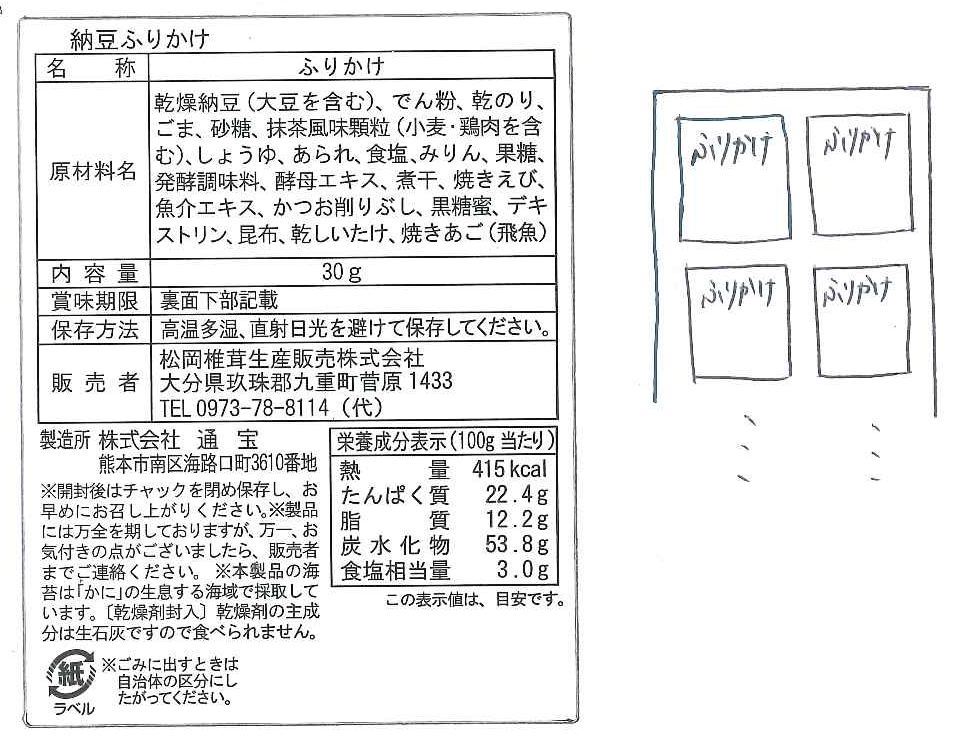 納豆ふりかけ
名 称 ふりかけ
原材料名 乾燥納豆(大豆を含む)、でん粉、乾のり、
ごま、砂糖、抹茶風味顆粒(小麦・鶏肉を含
む)、しょうゆ、あられ、食塩、みりん、果糖、
発酵調味料、酵母エキス、煮干、焼きえび、
魚介エキス、かつお削りぶし、黒糖蜜、デキ
ストリン、昆布、乾しいたけ、焼きあご(飛魚)
内容量 30g
賞味期限 裏面下部記載
保存方法 高温多湿、直射日光を避けて保存してください。
販売者 松岡椎茸生産販売株式会社
大分県玖珠郡九重町菅原1433
TEL 0973-78-8114 (代)
製造所 株式会社 通宝
熊本市南区海路口町3610番地
※開封後はチャックを閉め保存し、お
早めにお召し上がりください。※製品
には万全を期しておりますが、万一、お
気付きの点がございましたら、販売者
までご連絡ください。 ※本製品の海
苔は「かに」の生息する海域で採取して
います。〔乾燥剤封入〕乾燥剤の主成
分は生石灰ですので食べられません。
栄養成分表示(100g当たり)
熱量 415kcal
たんぱく質 22.4g
脂質 12.2g
炭水化物 53.8g
食塩相当量 3.0g
この表示値は、目安です。
紙
ラベル
※ごみに出すときは
自治体の区分にし
たがってください。
ふりかけ ふりかけ
ふりかけ ふりかけ